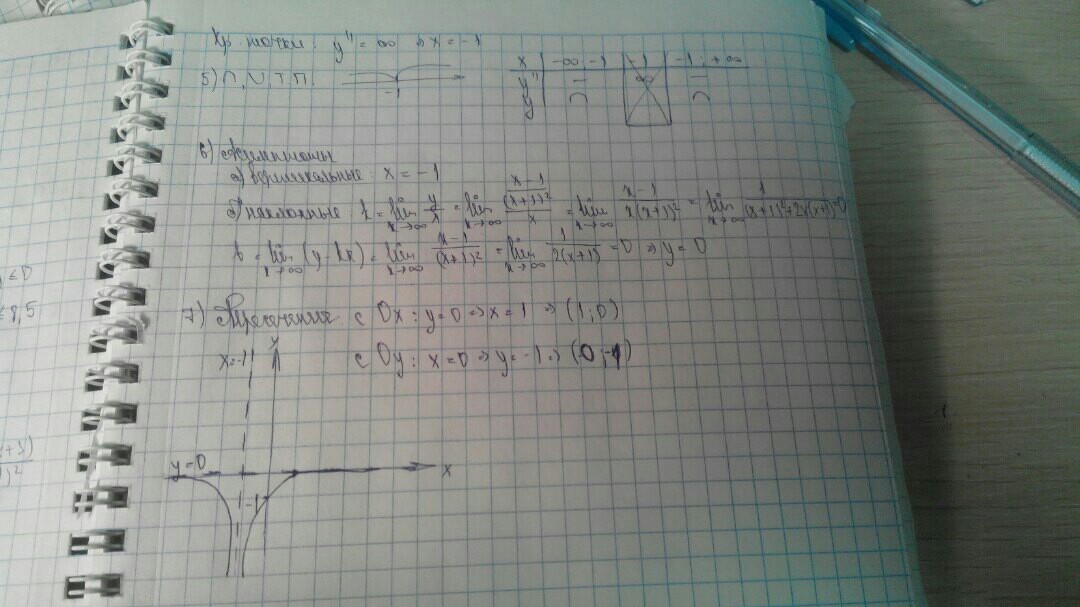 Кр. точки: y'' = ∞ ⇒ x = -1
5) ∩, ∪, т.п.
-1
x | -∞; -1 | -1 | -1; +∞
y'' | − | ∞ | −
y | ∩ | | ∩
6) Асимптоты
а) вертикальные: x = -1
наклонные k = lim x→∞ y/x = lim x→∞ ((x-1)/(x+1)²)/x = lim x→∞ (x-1)/(x(x+1)²) = lim x→∞ 1/((x+1)²+2x(x+1)) = 0
b = lim x→∞ (y - kx) = lim x→∞ (x-1)/(x+1)² = lim x→∞ 1/(2(x+1)) = 0 ⇒ y = 0
7) Пересечение с Ox: y = 0 ⇒ x = 1 ⇒ (1; 0)
с Oy: x = 0 ⇒ y = -1 ⇒ (0; -1)
x=-1 y
y=0 x
-1
≤ 0